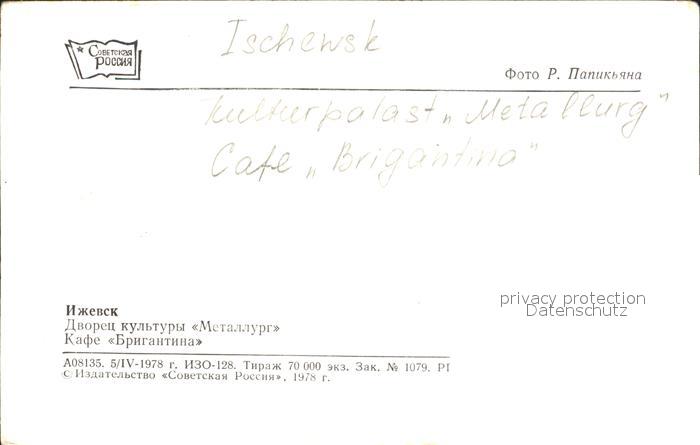 Советская
Россия
Ischewsk
Фото Р. Папикьяна
Kulturpalast „Metallurg"
Cafe „Brigantina"
privacy protection
Datenschutz
Ижевск
Дворец культуры «Металлург»
Кафе «Бригантина»
А08135. 5/IV-1978 г. ИЗО-128. Тираж 70 000 экз. Зак. № 1079. РI
© Издательство «Советская Россия», 1978 г.